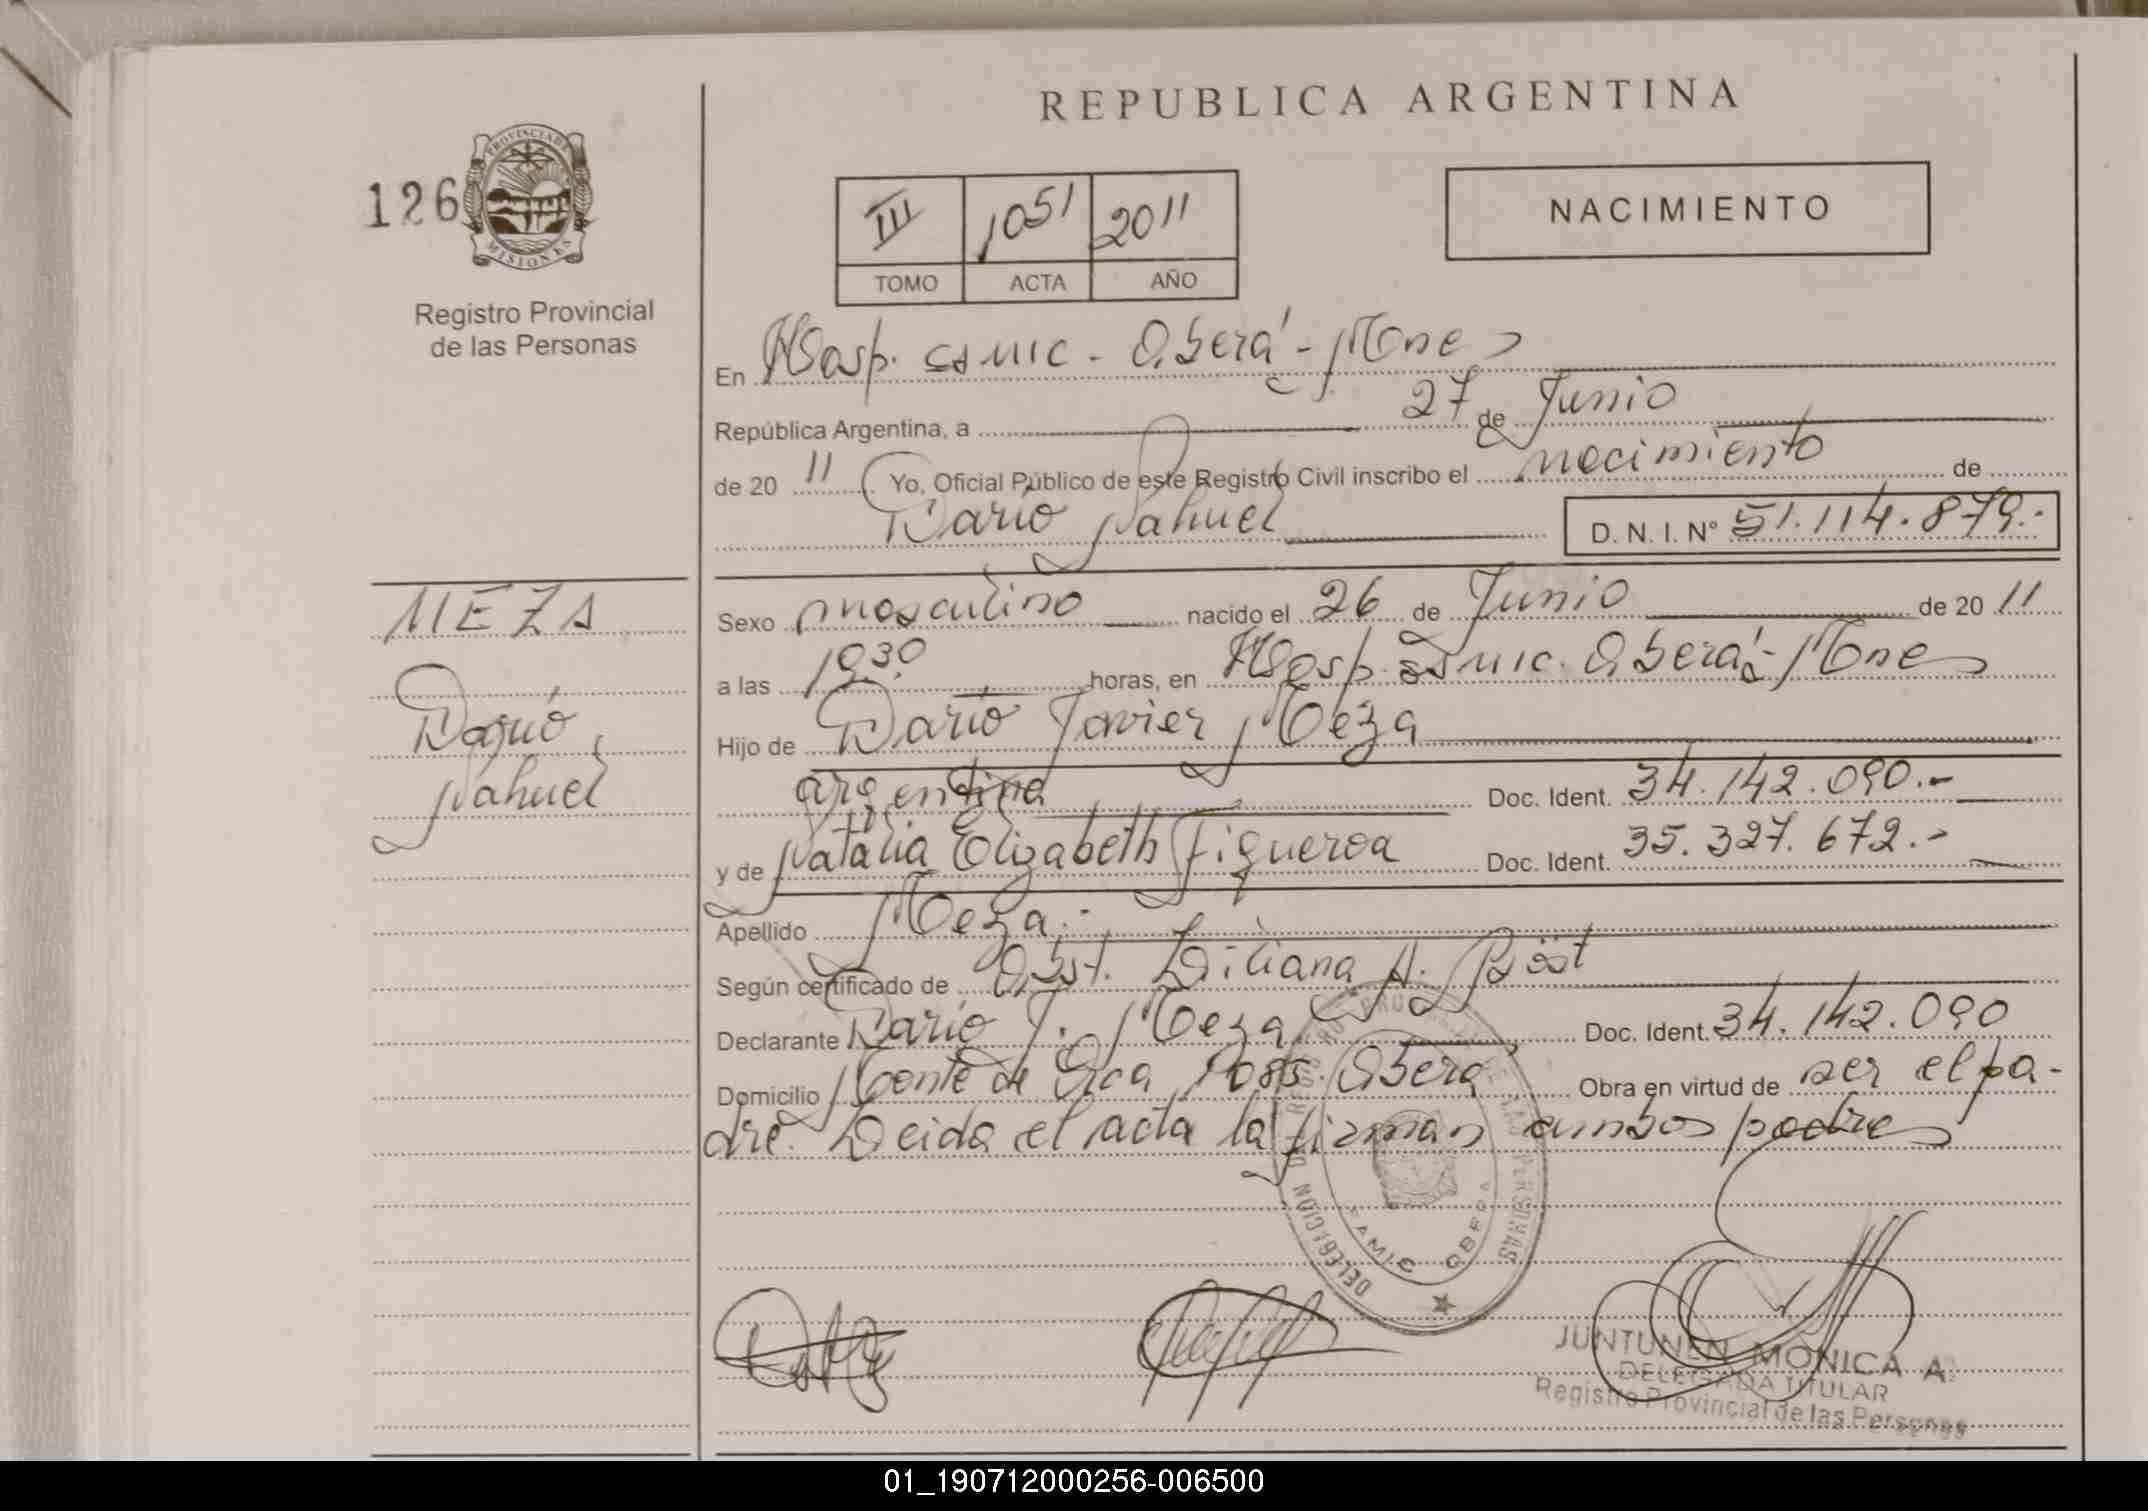 REPUBLICA ARGENTINA
126
PROVINCIA DE MISIONES
Registro Provincial
de las Personas
III 1051 2011
TOMO ACTA AÑO
NACIMIENTO
En Hosp. Samic - Oberá - Mnes
República Argentina, a 27 de Junio
de 20 11 Yo, Oficial Público de este Registro Civil inscribo el nacimiento de
Darío Nahuel D. N. I. N° 51.114.879.-
MEZA
Darío
Nahuel
Sexo masculino nacido el 26 de Junio de 20 11
a las 19:30 horas, en Hosp. Samic. Oberá - Mnes
Hijo de Darío Javier Meza
argentina Doc. Ident. 34.142.090.-
y de Natalia Elizabeth Figueroa Doc. Ident. 35.327.672.-
Apellido Meza.-
Según certificado de Obst. Liliana A.
Declarante Darío J. Meza Doc. Ident. 34.142.090
Domicilio Monte de Oca Oberá Obra en virtud de ser el pa-
dre. Leida el acta la firman ambos padres
DELEGACION REGISTRO PROVINCIAL DE LAS PERSONAS
SAMIC OBERA
JUNTUNEN MONICA A.
DELEGADA TITULAR
Registro Provincial de las Personas
01_190712000256-006500